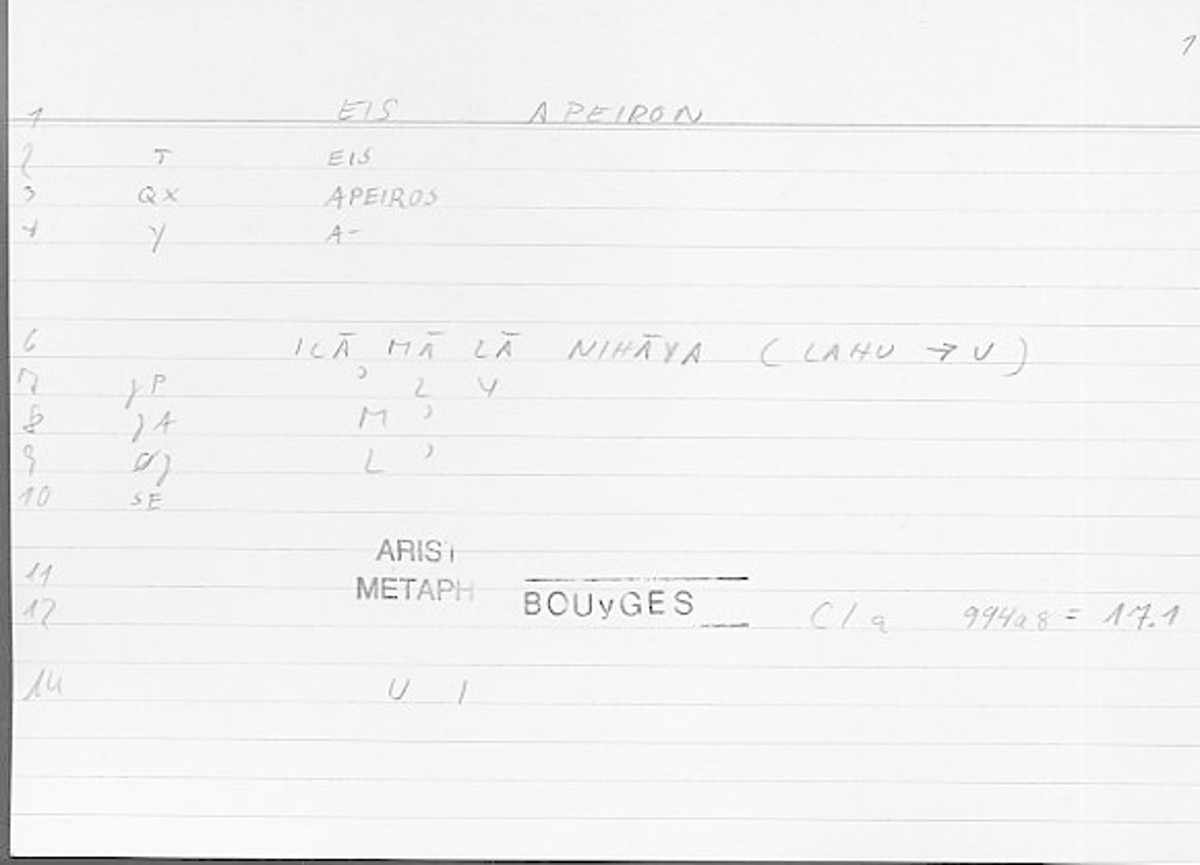 1
1 EIS APEIRON
2 T EIS
3 QX APEIROS
4 y A-
6 ILĀ MĀ LĀ NIHĀYA (LAHU → U)
7 γP ʾ L Y
8 γA M ʾ
9 Øγ L ʾ
10 SE
ARIST
11 METAPH
12 BOUyGES C/a 994a8 = 17.1
14 U I